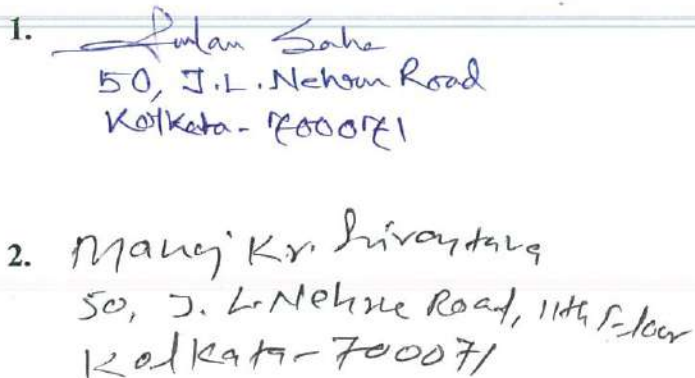 1. Saha
50, J.L. Nehru Road
Kolkata - 700071
2. Manoj Kr. Srivastava
50, J. L. Nehru Road, 11th Floor
Kolkata - 700071